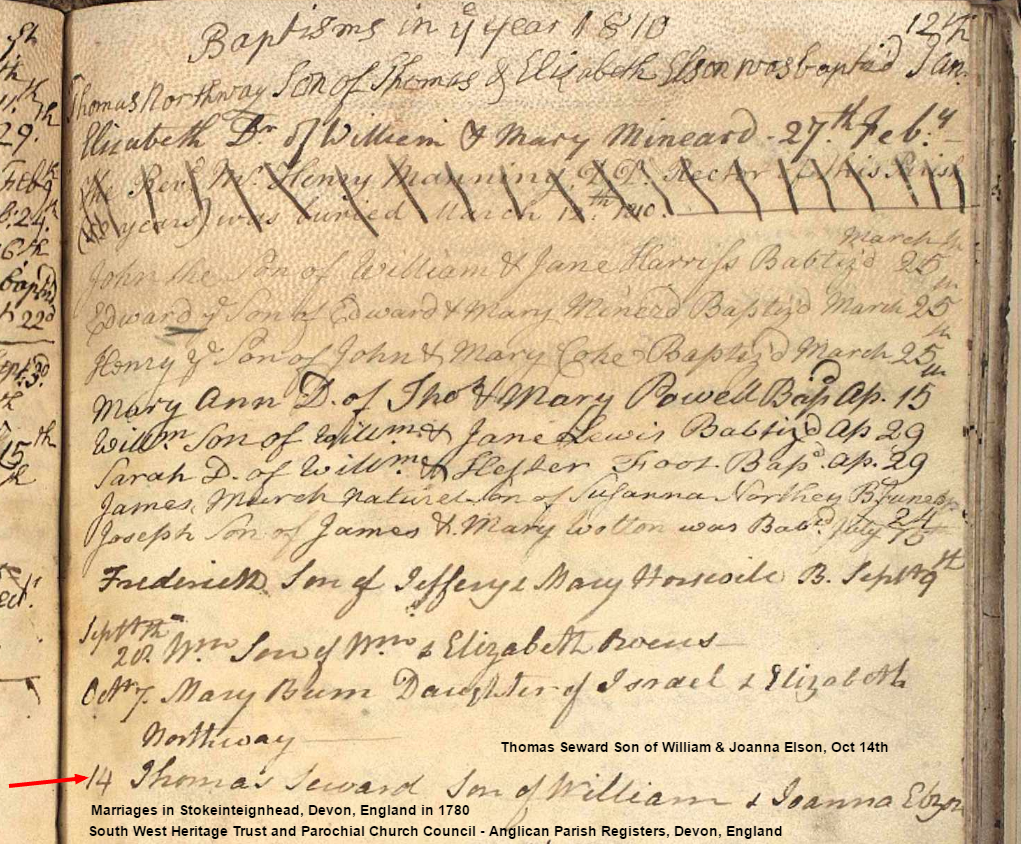 Baptisms in ẙ year 1810
12th
Thomas Northway Son of Thomas & Elisabeth Elson was baptid Jan.
Elisabeth Dr. of William & Mary Mineard - 27.th Feb.y
The Revd. Mr. Henry Manning, Rector of this Parish
years) was buried March 12.th 1810.
March
John the Son of William & Jane Harriss Babtiz'd 25
Edward ẙ Son of Edward & Mary Minerd Baptiz'd March 25
Henry ẙ Son of John & Mary Coke Baptiz'd March 25
Mary Ann D. of Tho.s & Mary Powell Bap.d Ap. 15
Willm Son of Willm & Jane Lewis Babtiz'd Ap 29
Sarah D. of Willm & Hester Foot Bap.d Ap. 29
James, March natural son of Susanna Northey B. June 24
Joseph Son of James & Mary Wotton was Bab.d July 15
Frederick Son of Jeffery & Mary Horswill B. Sept 9th
Septbth
20. Wm Son of Wm & Elizabeth
Octr 7. Mary Daughter of Israel & Elizabeth
Northway
Thomas Seward Son of William & Joanna Elson, Oct 14th
14 Thomas Seward Son of William & Joanna Elson
Marriages in Stokeinteignhead, Devon, England in 1780
South West Heritage Trust and Parochial Church Council - Anglican Parish Registers, Devon, England